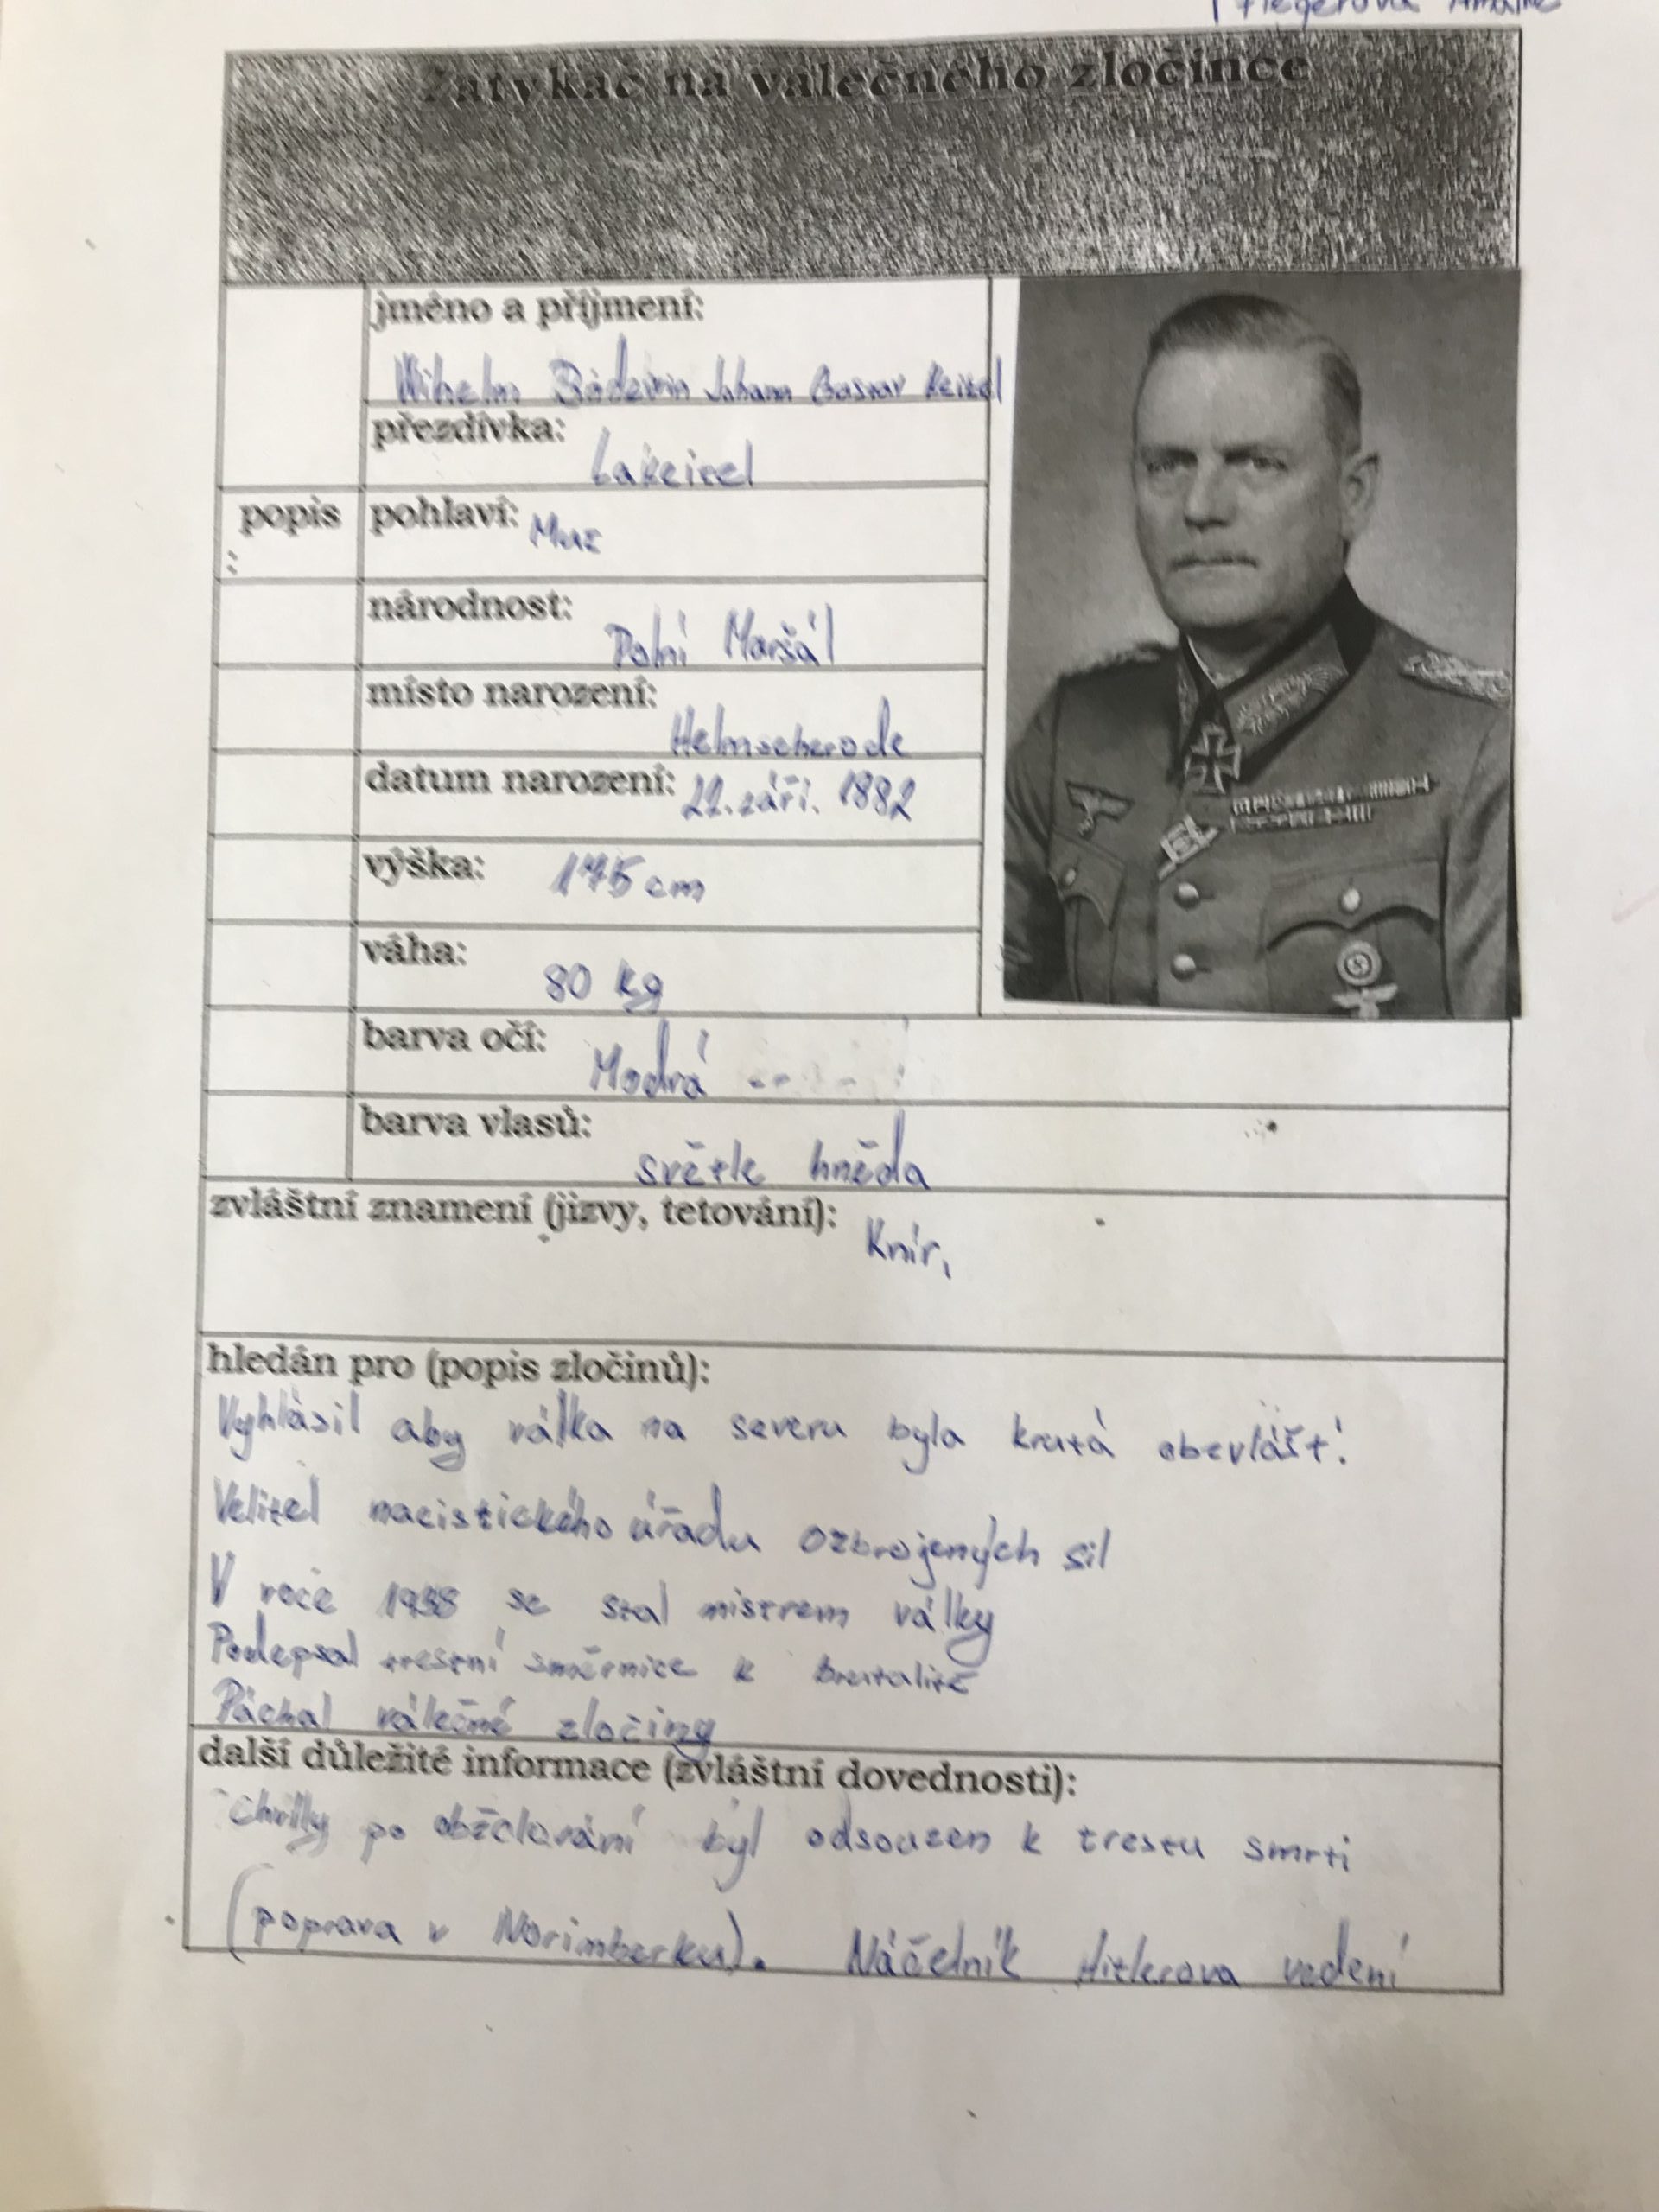 Amálie
Zatykač na válečného zločince
jméno a příjmení:
Wihelm Bodewin Johann Gustav Keitel
přezdívka:
Lakeitel
popis
:
pohlaví: Muz
národnost:
Polní Maršál
místo narození:
Helmscherode
datum narození: 22. září. 1882
výška: 175 cm
váha:
80 kg
barva očí:
Modrá
barva vlasů:
světle hněda
zvláštní znamení (jizvy, tetování): Knír,
hledán pro (popis zločinů):
Vyhlásil aby válka na severu byla krutá obzvlášt!
Velitel nacistického úřadu ozbrojených sil
V roce 1938 se stal mistrem války
Podepsal trestní směrnice k brutalitě
Páchal válečné zločiny
další důležité informace (zvláštní dovednosti):
Chvíly po obžalování byl odsouzen k trestu smrti
(poprava v Norimberku). Náčelník Hitlerova vedení